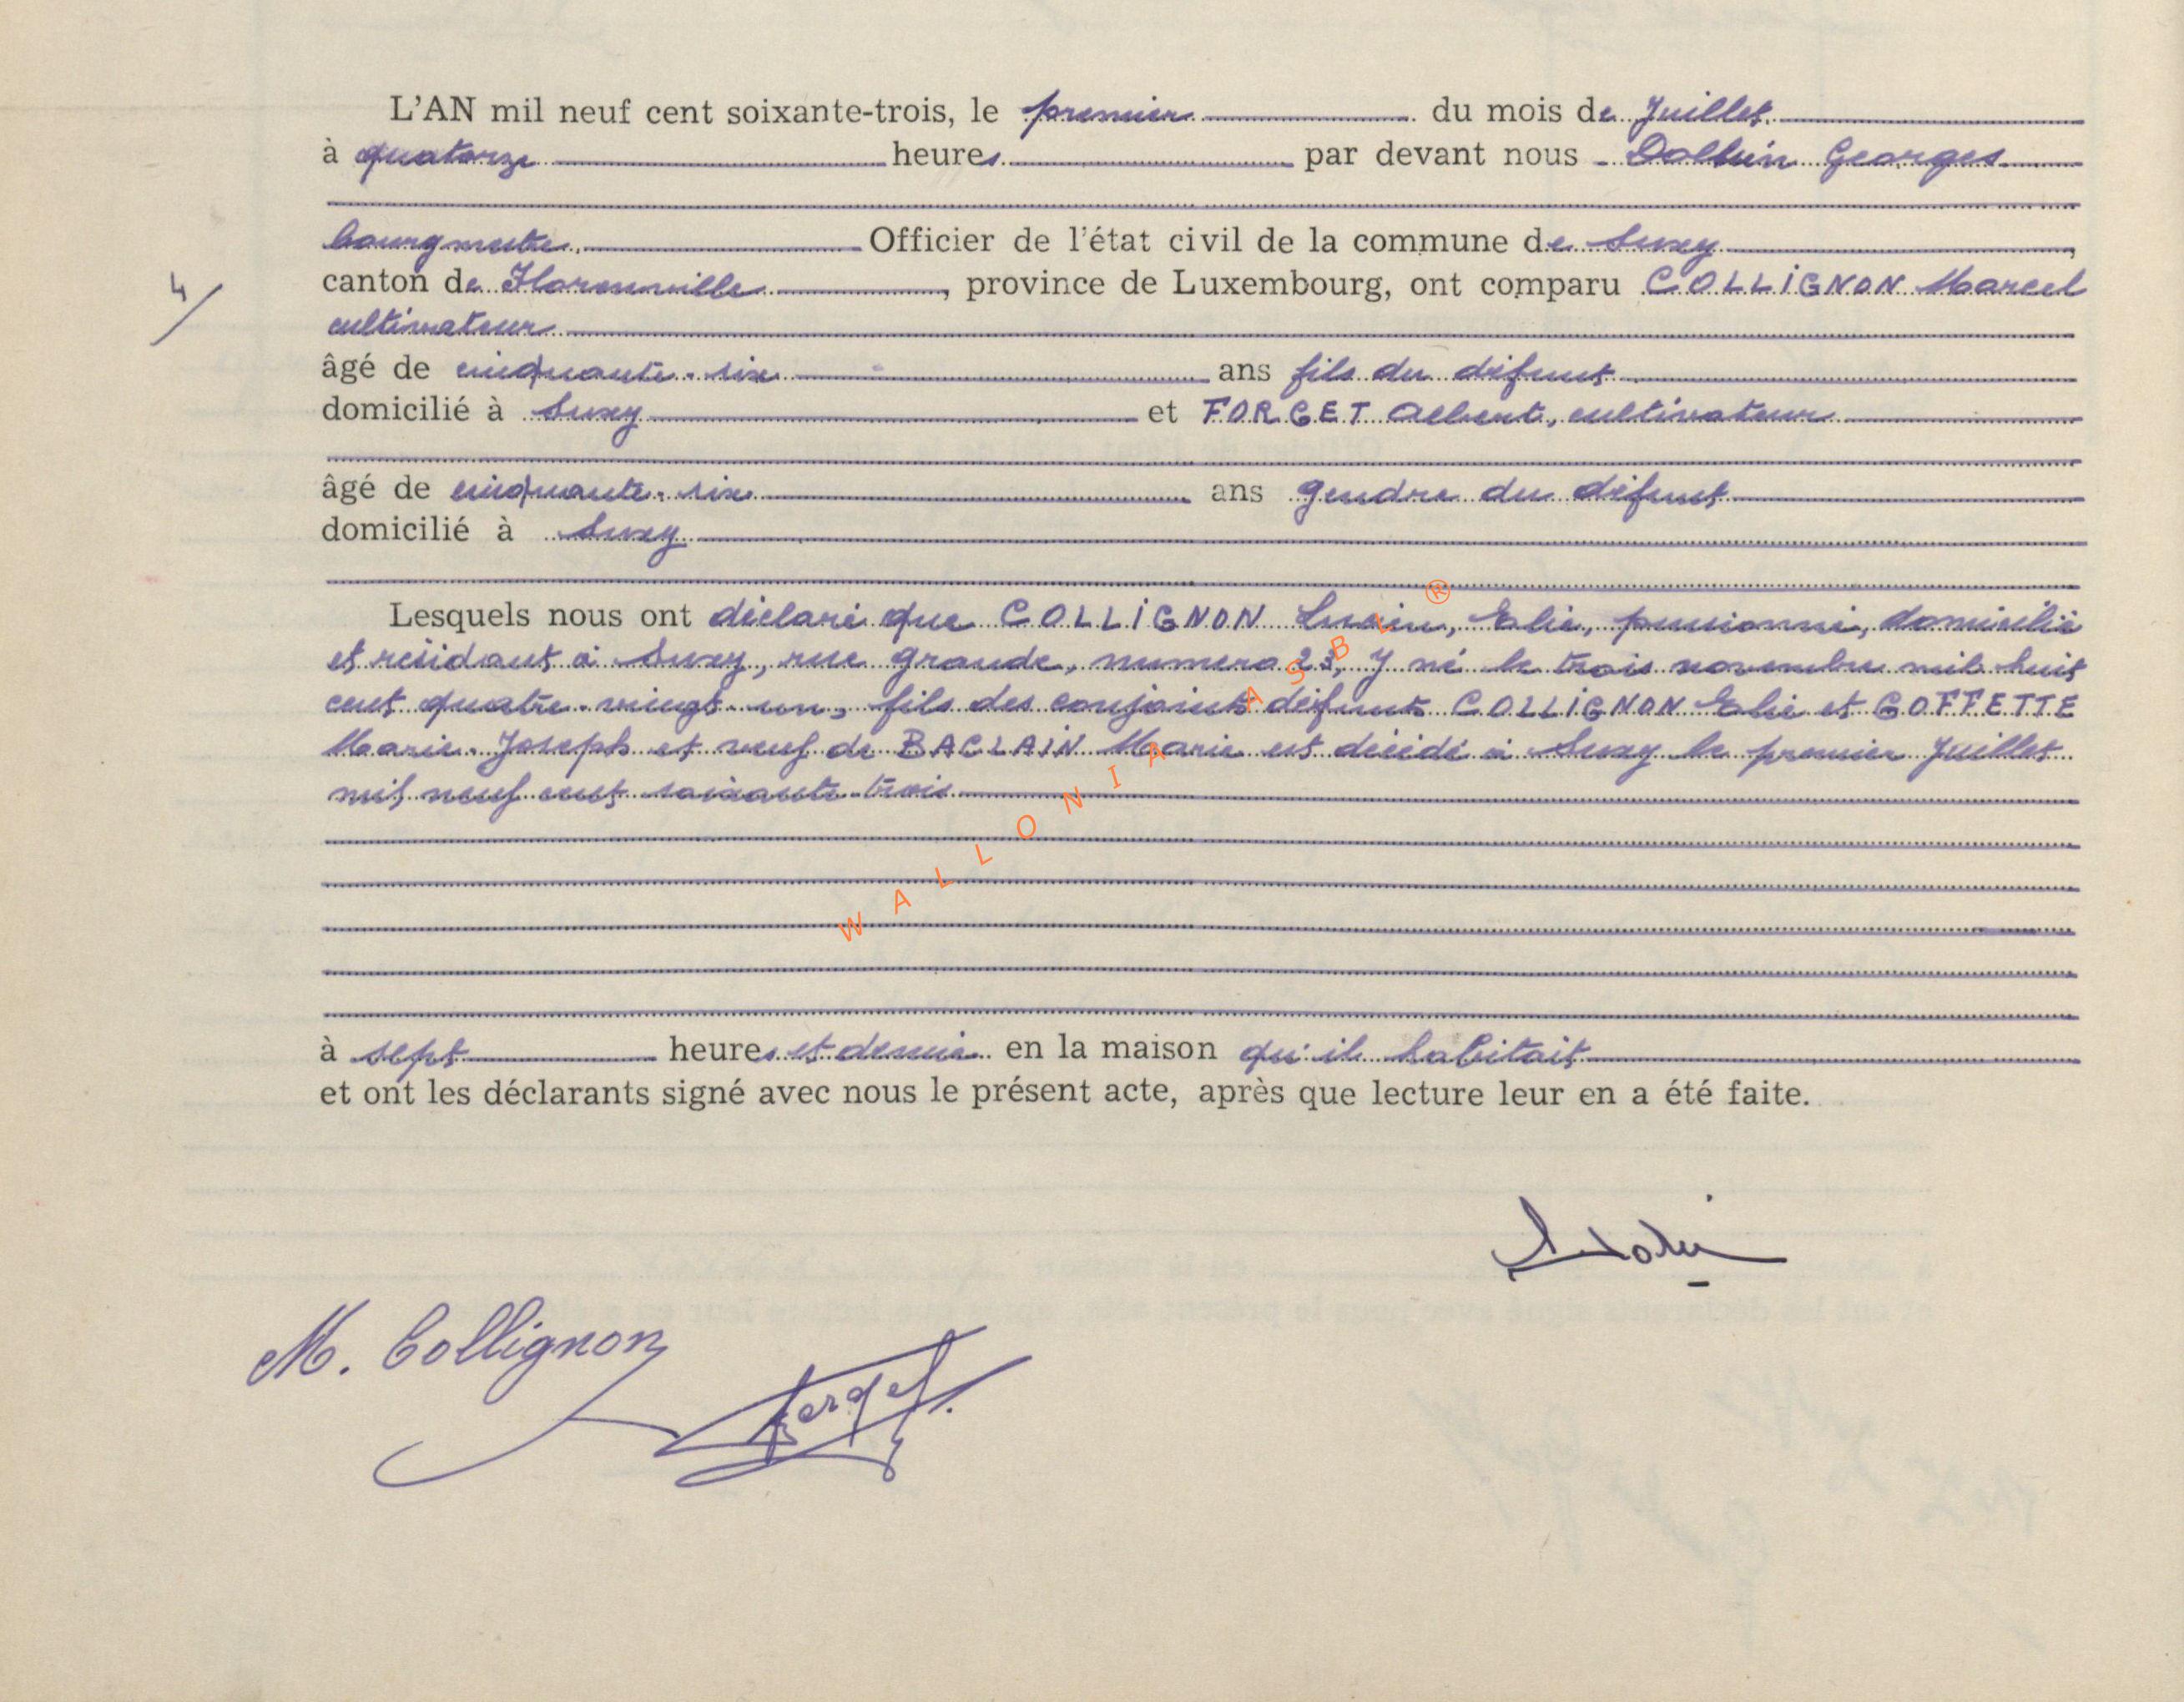 L'AN mil neuf cent soixante-trois, le premier du mois de Juillet
à quatorze heures par devant nous Georges
bourgmestre Officier de l'état civil de la commune de Suxy,
4/
canton de Florenville, province de Luxembourg, ont comparu COLLIGNON Marcel
cultivateur
âgé de cinquante-six ans fils du défunt
domicilié à Suxy et FORGET Albert, cultivateur
âgé de cinquante-six ans gendre du défunt
domicilié à Suxy
Lesquels nous ont déclaré que COLLIGNON Lucien, Elie, pensionné, domicilié
et résidant à Suxy, rue grande, numero 23, y né le trois novembre mil huit
cent quatre-vingt-un, fils des conjoints défunts COLLIGNON Elie et GOFFETTE
Marie-Joseph et veuf de BACLAIN Marie est décédé à Suxy le premier Juillet
mil neuf cent soixante-trois
à sept heures et demie en la maison qu'il habitait
et ont les déclarants signé avec nous le présent acte, après que lecture leur en a été faite.
M. Collignon
Forget
WALLONIA ASBL ®